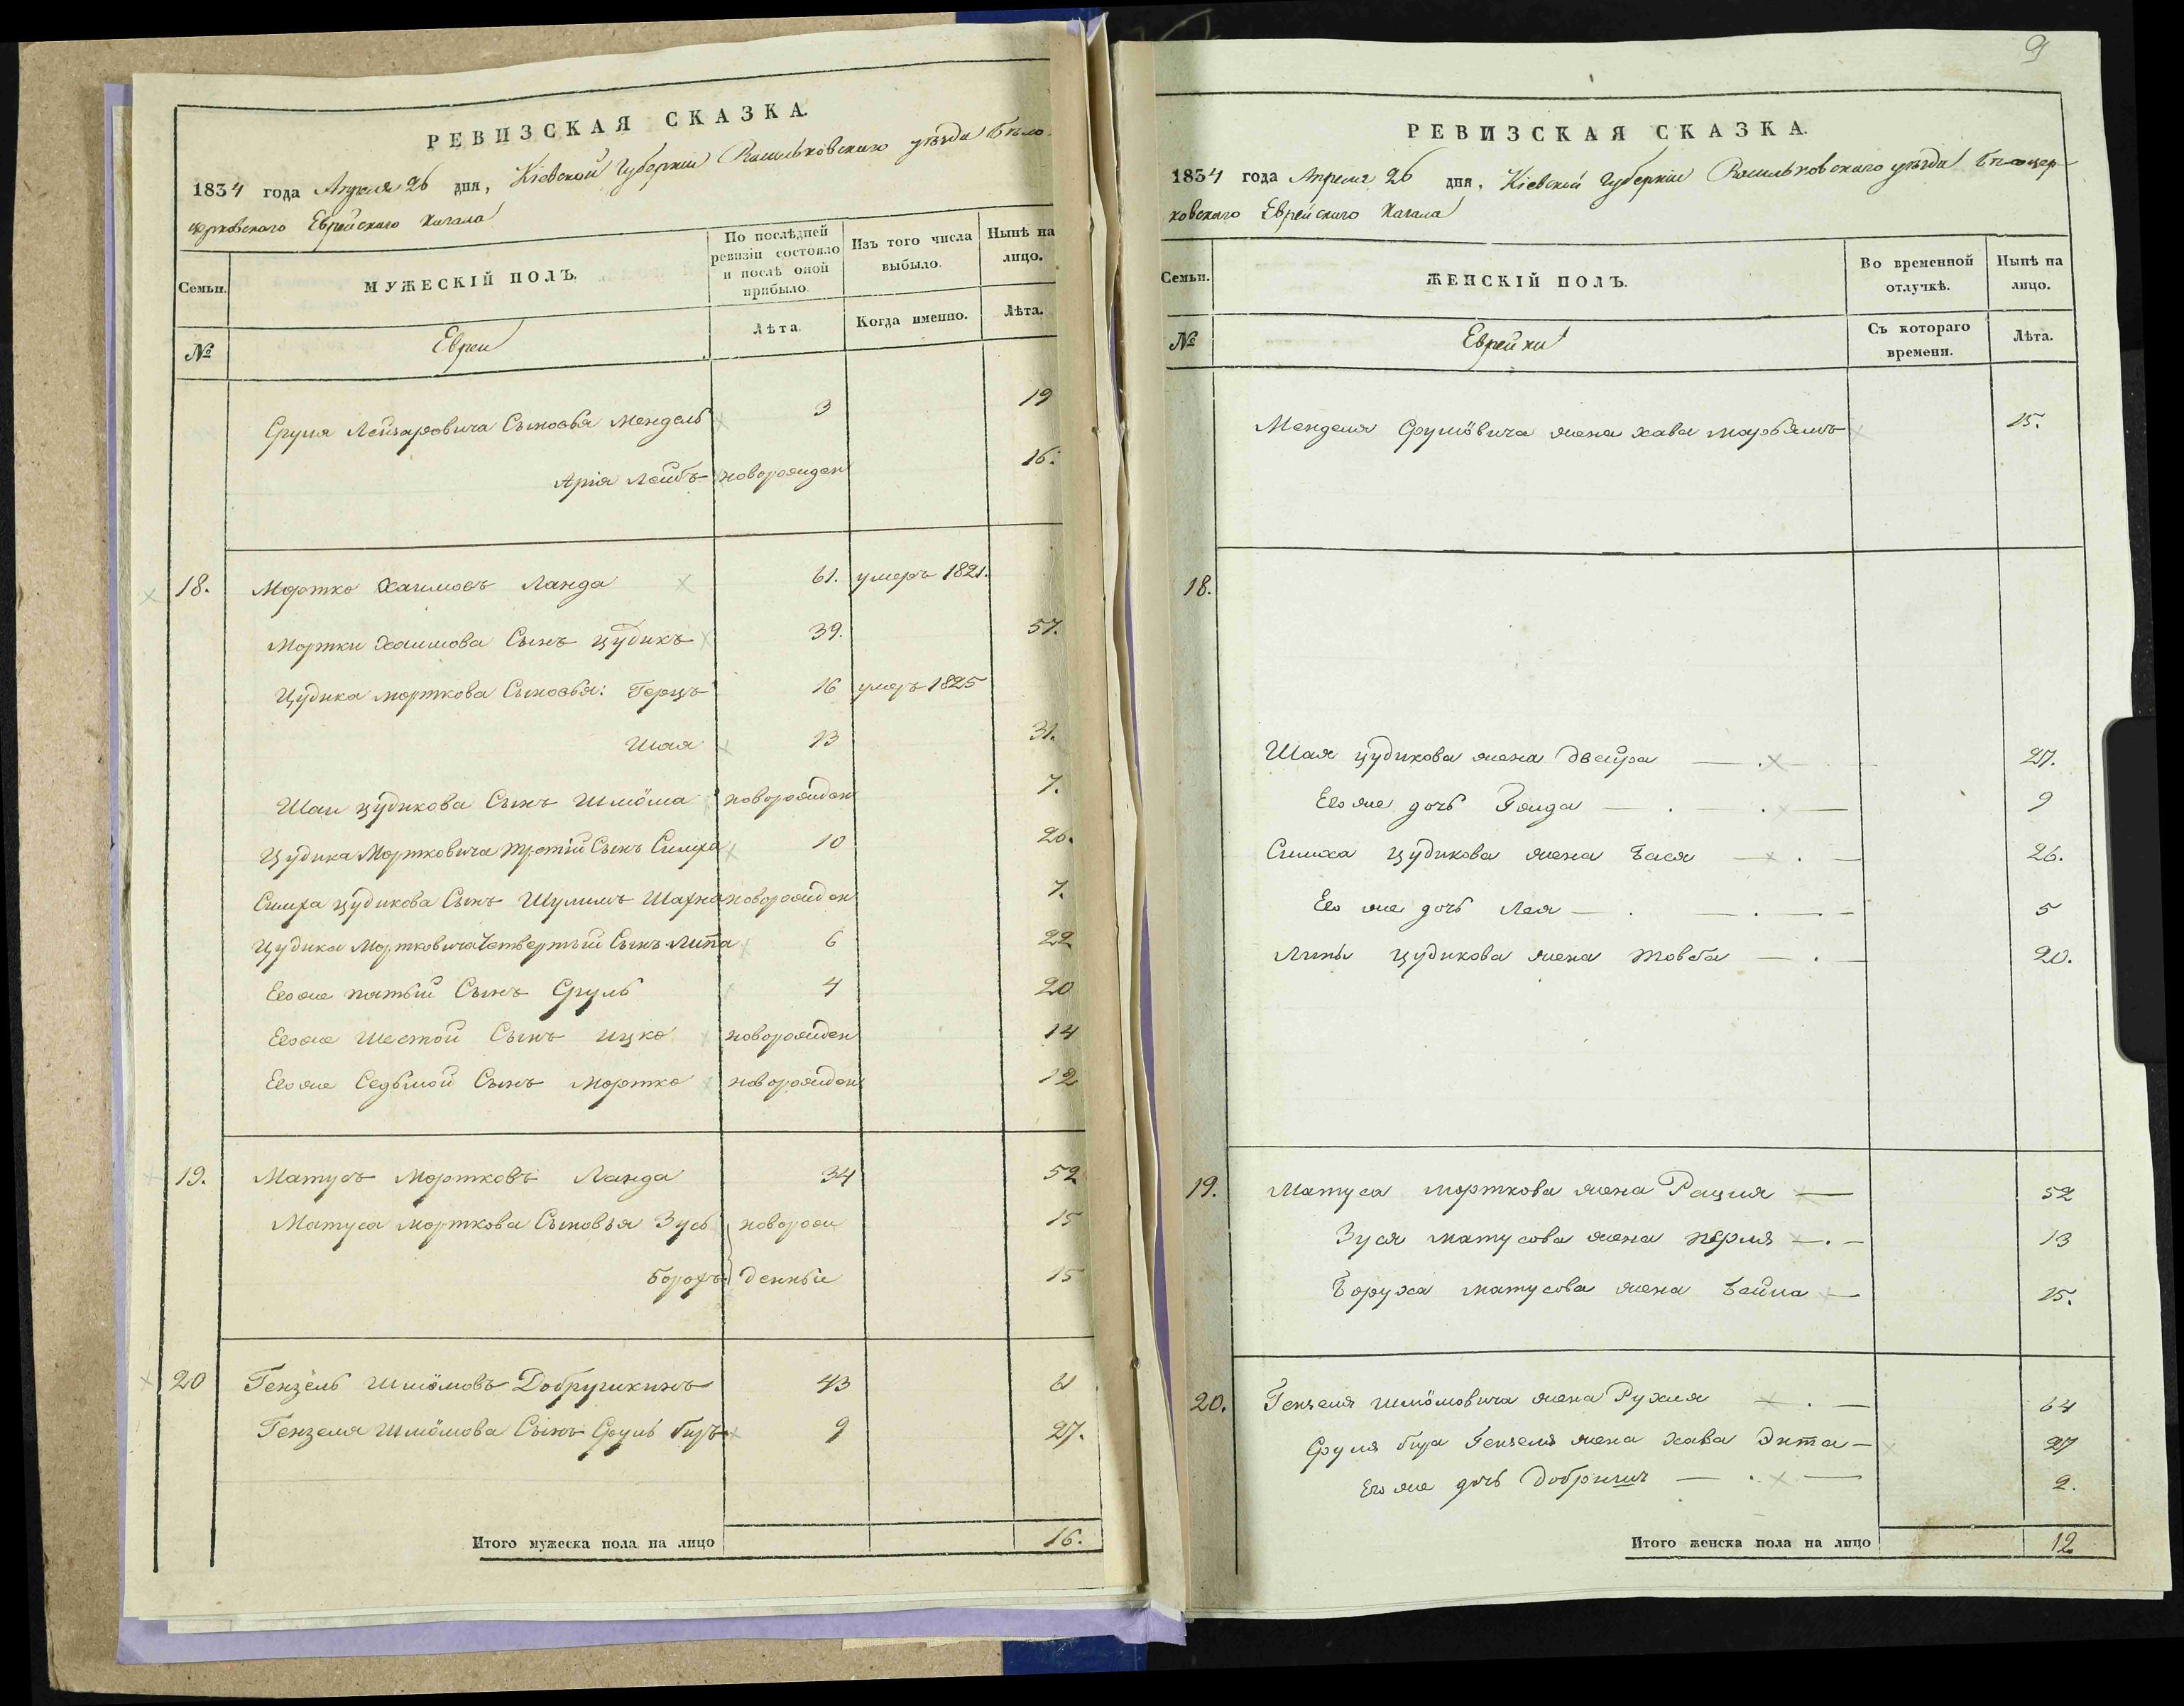 РЕВИЗСКАЯ СКАЗКА.
1834 года Апреля 26 дня, Кіевской Губерніи Васильковскаго уѣзда Бѣло-
церковскаго Еврейскаго Кагала
Семьи.
МУЖЕСКІЙ ПОЛЪ.
По послѣдней ревизіи состояло и послѣ оной прибыло.
Изъ того числа выбыло.
Нынѣ на лицо.
№
Евреи
Лѣта.
Когда именно.
Лѣта.
Сруля Лейзаровича Сыновья Мендель 3 19
Арія Лейбъ новорожден 16.
18. Мортко Хаимовъ Ланда 61. умеръ 1821.
Мортки Хаимова Сынъ Цудикъ 39. 57.
Цудика Морткова Сыновья: Герцъ 16 умеръ 1825
Шая 13 31.
Шаи Цудикова Сынъ Шмйома новорожден 7.
Цудика Мортковича третій Сынъ Симха 10 26.
Симха Цудикова Сынъ Шулимъ Шахна новорожден 7.
Цудика Мортковича Четвертый Сынъ Липа 6 22
Его же пятый Сынъ Сруль 4 20
Его же Шестой Сынъ Ицко новорожден 14
Его же Седьмой Сынъ Мортко новорожден 12
19. Матусъ Мортковъ Ланда 34 52
Матуса Морткова Сыновья Зусь новорож 15
Борохъ денные 15
20 Гензель Шмйомовъ Добрушкинъ 43 61
Гензеля Шмйомова Сынъ Сруль 9 27.
Итого мужеска пола на лицо 16.
9
РЕВИЗСКАЯ СКАЗКА.
1834 года Апреля 26 дня, Кіевской Губерніи Васильковскаго уѣзда Бѣлоцер-
ковскаго Еврейскаго Кагала
Семьи.
ЖЕНСКІЙ ПОЛЪ.
Во временной отлучкѣ.
Нынѣ на лицо.
№
Еврейки
Съ котораго времени.
Лѣта.
Менделя Срулёвича жена Хава Марьямъ 15.
18.
Шая Цудикова жена Двейра 27.
Его же дочь 9
Симха Цудикова жена Бася 26.
Его же дочь Лея 5
Липы Цудикова жена Товба 20.
19. Матуса Морткова жена Рация 52
Зуся Матусова жена Перля 13
Боруха Матусова жена Бейла 15.
20. Гензеля Шмйомовича жена Рухля 64
Сруля Гензеля жена Хава Дита 27
Его же дочь 2.
Итого женска пола на лицо 12